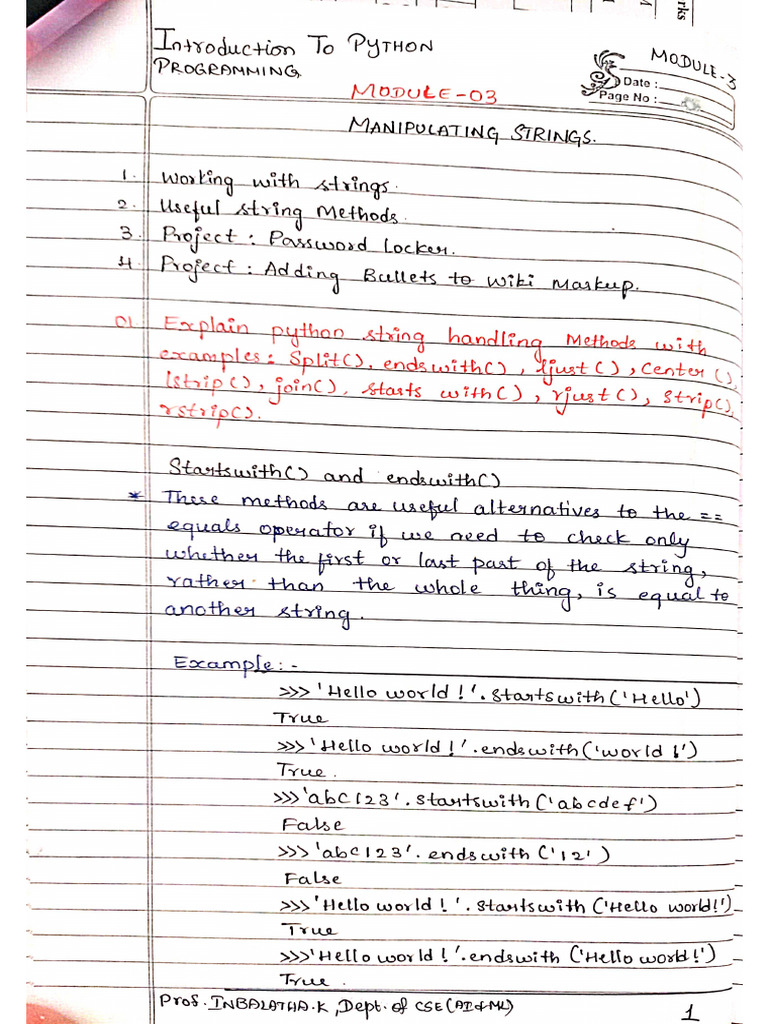 rks
Introduction To Python
Programming
Module-3
Date :
Page No :
Module-03
Manipulating Strings.
1. Working with strings.
2. Useful string Methods.
3. Project : Password Locker.
4. Project : Adding Bullets to Wiki Markup.
01. Explain python string handling Methods with
examples: Split(), endswith(), ljust(), center(),
lstrip(), join(), starts with(), rjust(), strip(),
rstrip().
Startswith() and endswith()
* These methods are useful alternatives to the ==
equals operator if we need to check only
whether the first or last part of the string,
rather than the whole thing, is equal to
another string.
Example:-
>>> 'Hello world !'.startswith('Hello')
True
>>> 'Hello world !'.endswith('world !')
True.
>>> 'abc123'.startswith('abcdef')
False
>>> 'abc123'.endswith('12')
False
>>> 'Hello world !'.startswith('Hello world!')
True
>>> 'Hello world !'.endswith('Hello world!')
True.
Prof. INBALATHA.K, Dept. of CSE(AI&ML)
1